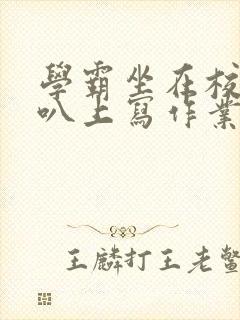 學霸坐在校
叭上寫作業
王麟打王老鱉